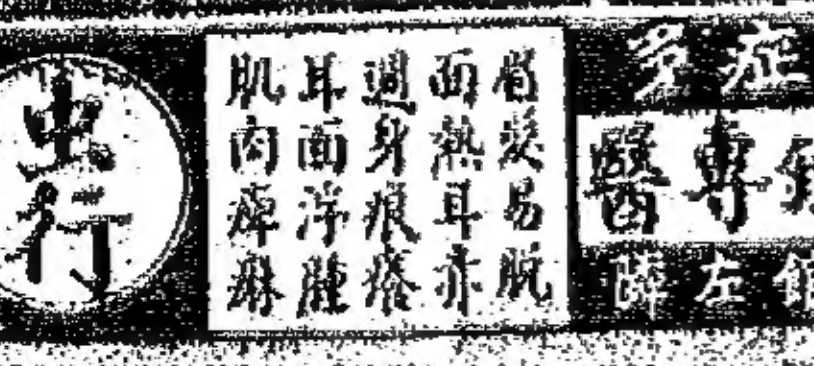 症多
專醫
左
眉髮易脫
面熱耳赤
週身痕癢
耳面浮腫
肌肉痺麻
虫行